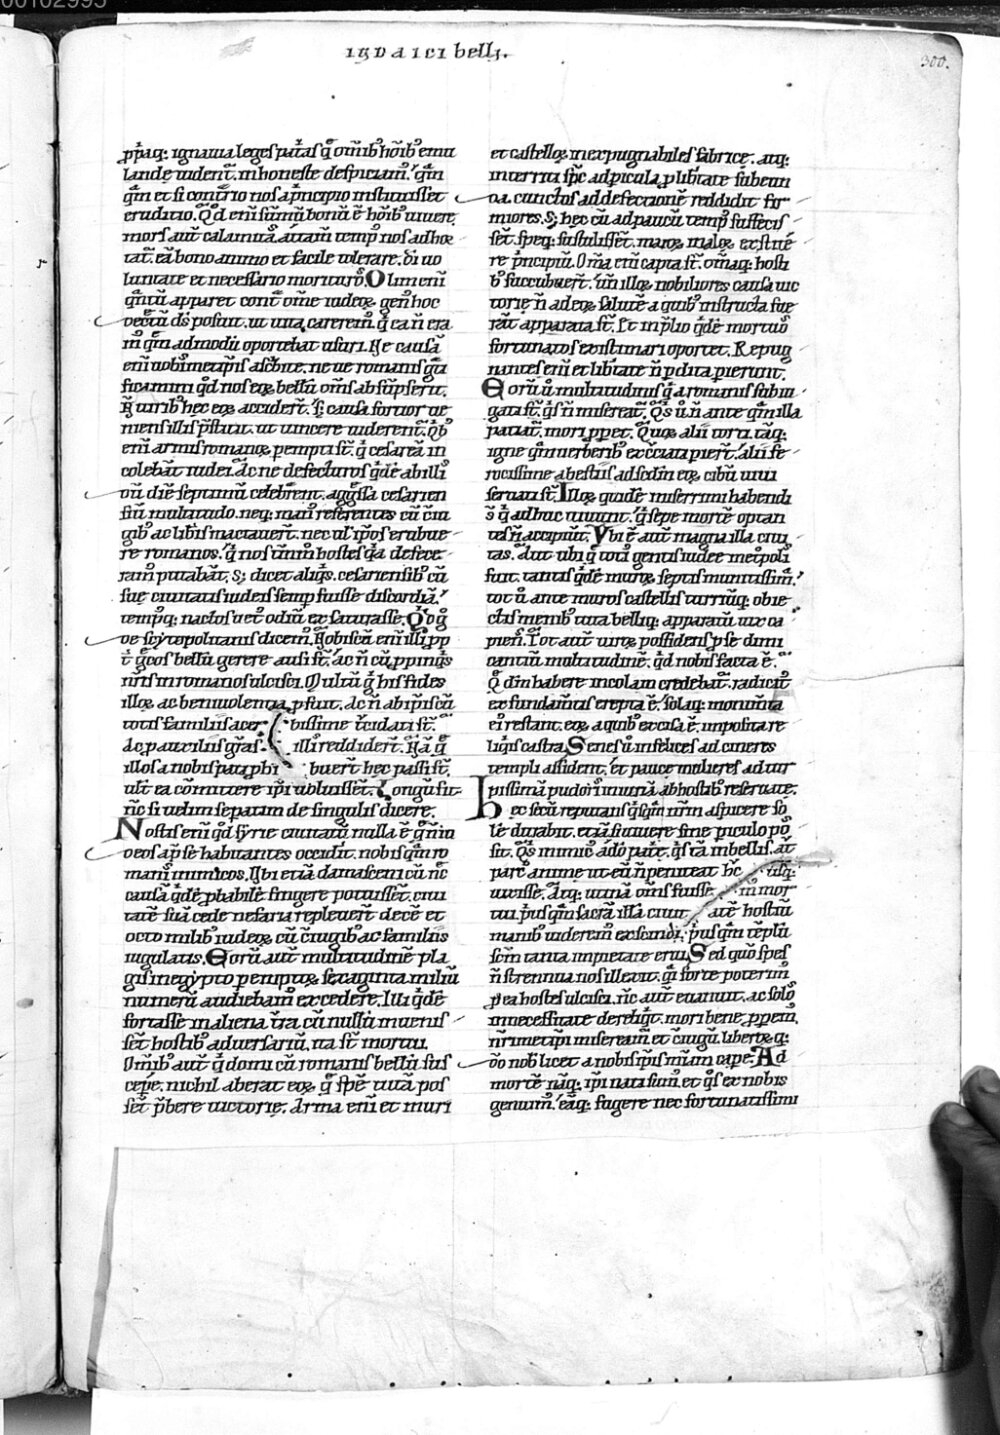 00102995
IUDAICI belli.
300.
p̄paq: ignauia leges patͥas q̄ om̄ib; hōib; emu
landę uident̄. inhoneste despiciam͛. q̄m
q̄m et si contͣrio nos a pͥncipio instituisset
eruditio. Qd̄ eni sūmū bonū ē hōib; uiuere
mors aut̄ calamitaͣ. attam̄ temp͛ nos ad hoͨ
tat̄. eā bono animo et facile tolerare. di uo
luntate et necessario morituro͛. Olim eni
qͣntū apparet contͣ om̄e iudeoꝝ gen͛ hoc
uectū dˢ posuit. ut uita carerem͛. qͥ ea ñ era
m͛ qͣm admodū oportebat usuri. Ne causā
eni uobismetip̄is ascͥbite. neue romanis gͣti
ficamini qd̄ nos eoꝝ bellū om̄s absūpserit.
Nͦ uirib; hęc eoꝝ accidert̄. sꝫ causa fortior ue
niens illis pͥstitit. ut uincere uiderent̄. Qͥb;
eni armis romanoꝝ pempti st̄. qͥ cesareā in
colebāt iudei. Ac ne defecturos qͥdē ab illiͦ
sū diē septimū celebrent̄. aggͣssa cesarien
siū multitudo. neq: man͛ referentes cū cͦiu
gib; ac libis mactauert̄. nec ul̄ ip̄os erubue
re romanos. qͥ nos tm̄ hostes qͥa defece
ram͛ putabāt. sꝫ dicet aliqͥs. cesariensib; cū
suę ciuitatis iudeis semp̄ fuisse discordiā.
tempq: nactos uet͛ odiū exsaturasse. Qͥd g͛
de scytopolitanis dicem͛. Nobiscū eni illi pp̄
t̄ gͬcos bellū gerere ausi st̄. ac ñ cū ppinqͥs
nr̄is in romanos ulcisci. Multū gͥ his fides
illoꝝ ac beniuolentia pfuit. Ac ñ ab ip̄is cū
totis familiis acer bissime tͬcidati st̄.
Ac p auxiliis gͬas illi reddidert̄. Nā q̄
illos a nobis pati phi buert̄ hęc passi st̄.
ult ea cōmittere ip̄i uoluissēt. Longū sit
ñc si uelim sepatim de singulis dicere.
Nostis eni qd̄ syrie ciuitatū nulla ē qͣ ñ iu
deos apͩse habitantes occidit. nobis qͣm ro
manis̄ inimicos. Ubi etiā damasceni cū nͨ
causā qͥdē pbabilē fingere potuissēt. ciui
tatē suā cede nefaria repleuert̄ decē et
octo milib; iudeoꝝ cū cͦiugib; ac familiis
iugulatis. Eorū aut̄ multitudinē pla
gis in egypto pemptoꝝ. sexaginta miliū
numerū audiebam͛ excedere. Illi qͥdē
fortasse in aliena tͬra cū nullū inuenis
sēt hostib; aduersariū. ita st̄ mortui.
Om̄ib; aut̄ qͥ domi cū romanis bellū sus
cepe͛. nichil aberat eoꝝ qͣ spē uitā pos
sēt pͥbere uictorię. Arma eni et muri
et castelloꝝ inexpugnabiles fabricę. atq:
interriti spͨ ad picula p libtate subeun
da. cunctos ad defectionē reddidit fir
miores. Sꝫ hęc cū ad paucū temp͛ suffecis
sēt. speq: sustulissēt. maioꝝ maloꝝ exstite͛
re pͥncipiū. Om̄a eni capta st̄. om̄iaq: hosti
b; succubuert̄. uñ illoꝝ nobiliores causa uic
torię ñ ad eoꝝ salutē a quib; instructa fue
rāt apparata st̄. Et in p̄lio qͥdē mortuoͦ
fortunatos existimari oportet. Repug
nantes eni et libtate ñ pdita pierunt.
Eorū u͛ multitudinis qͥ a romanis subiu
gati st̄. qͥs ñ misereat͛. Qͥs u͛ ñ ante qͣm illa
patiat͛. mori ppet. Quoꝝ alii torti. tāq:
igne qͣm uerberib; excͬciati piert̄. Alii fe
rocissime a bestiis ad scdm eoꝝ cibū uiui
seruati st̄. Illoꝝ quidē miserrimi habendi
s̄ qͥ adhuc uiuunt. qͥ sępe mortē optan
tes ñ accipiūt. Ubi ē aut̄ magna illa ciui
tas. Aut ubi qͥ toti gentis iudee met̄poliͦ
fuit. tantis qͥdē muroꝝ septis munitissim̄.
tot u͛ ante muros castellis turriūq: obie
ctis menib; uita belliq: apparatū uix ca
pien͛. Tot aut̄ uiroꝝ possidens p se dimi
cantiū multitudinē. qͥd nobis facta ē.
Qͥ dm̄ habere incolam credebat͛. radicit͛
ex fundam̄tis erepta ē. solaq: monum̄ta
ei restant. eoꝝ a quib; excisa ē. impositare
liqͥis castra. Senes u͛ infelices ad cineres
templi assident. et paucę mulieres ad tur
pissimā pudoriͣ iniuriā ab hostib; reseruatę.
Hęc secū reputans qͥsqͣm nr̄m aspicere so
lē durabit. etiā si uiuere sine piculo pos
sit. Qͥs inimicͦ adō patͥę. qͥs tā inbellis. aut
parcͦ animę ut eū ñ peniteat hͨ usq:
uixisse. Atq: utinā om̄s fuisse m̄ mor
tui. pͥus qͣm sacrā illā ciuit atē hostiū
manib; uiderem͛ exscindi. pͥus qͣm tēplū
scm̄ tanta impietate erui. Sed quō spes
ñ strennua nos illexit. qͥ forte poterim͛
p ea hostes ulcisci. ñc aut̄ euanuit. ac soloͦ
in necessitate dereliqͥt. mori bene ppem͛.
nr̄imetip̄i miseream͛ et cͦiugū. liberoꝝq:
dō nob licet a nobis ip̄is m̄iam capͤ. Ad
mortē naq: ip̄i nati sum͛. et qͥs ex nobis
genuim͛. eāq: fugere nec fortunatissimi